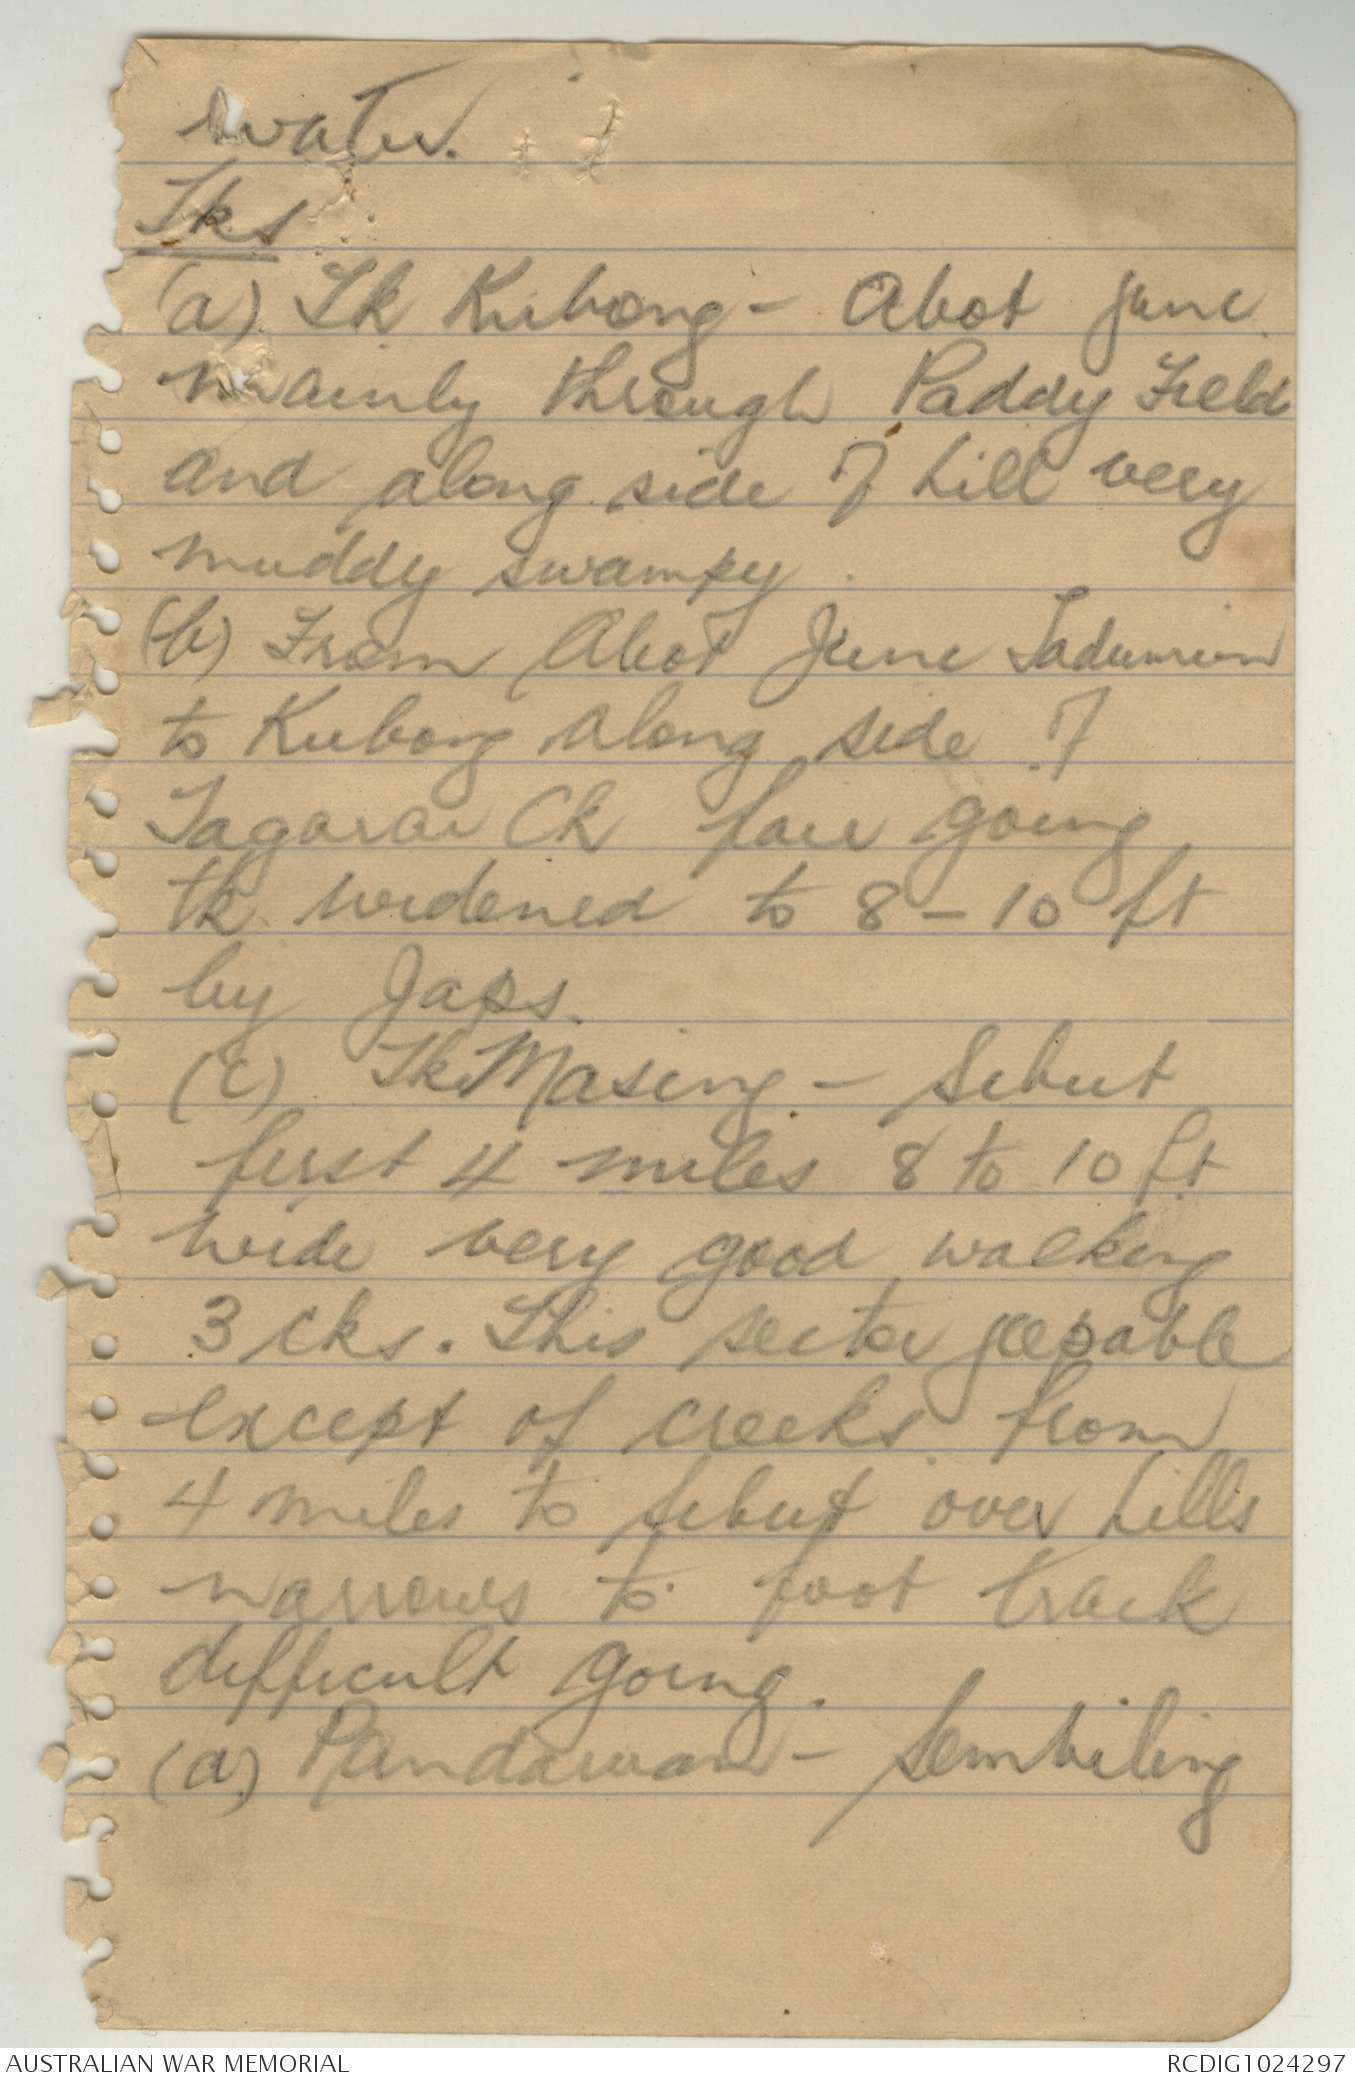 water.
Tks
(a) Tk Kubong - Abot June
mainly through Paddy Field
and along side of hill very
muddy swampy.
(b) From Abot June Tadumrum
to Kubong along side of
Tagarai Ck fair going
tk widened to 8 - 10 ft
by Japs.
(c) Tk Masing - Sebut
first 4 miles 8 to 10 ft
wide very good walking
3 cks. This sector jeepable
except of creeks from
4 miles to Sebut over hills
narrows to foot track
difficult going.
(d) Pandawan - Sembiling
AUSTRALIAN WAR MEMORIAL
RCDIG1024297